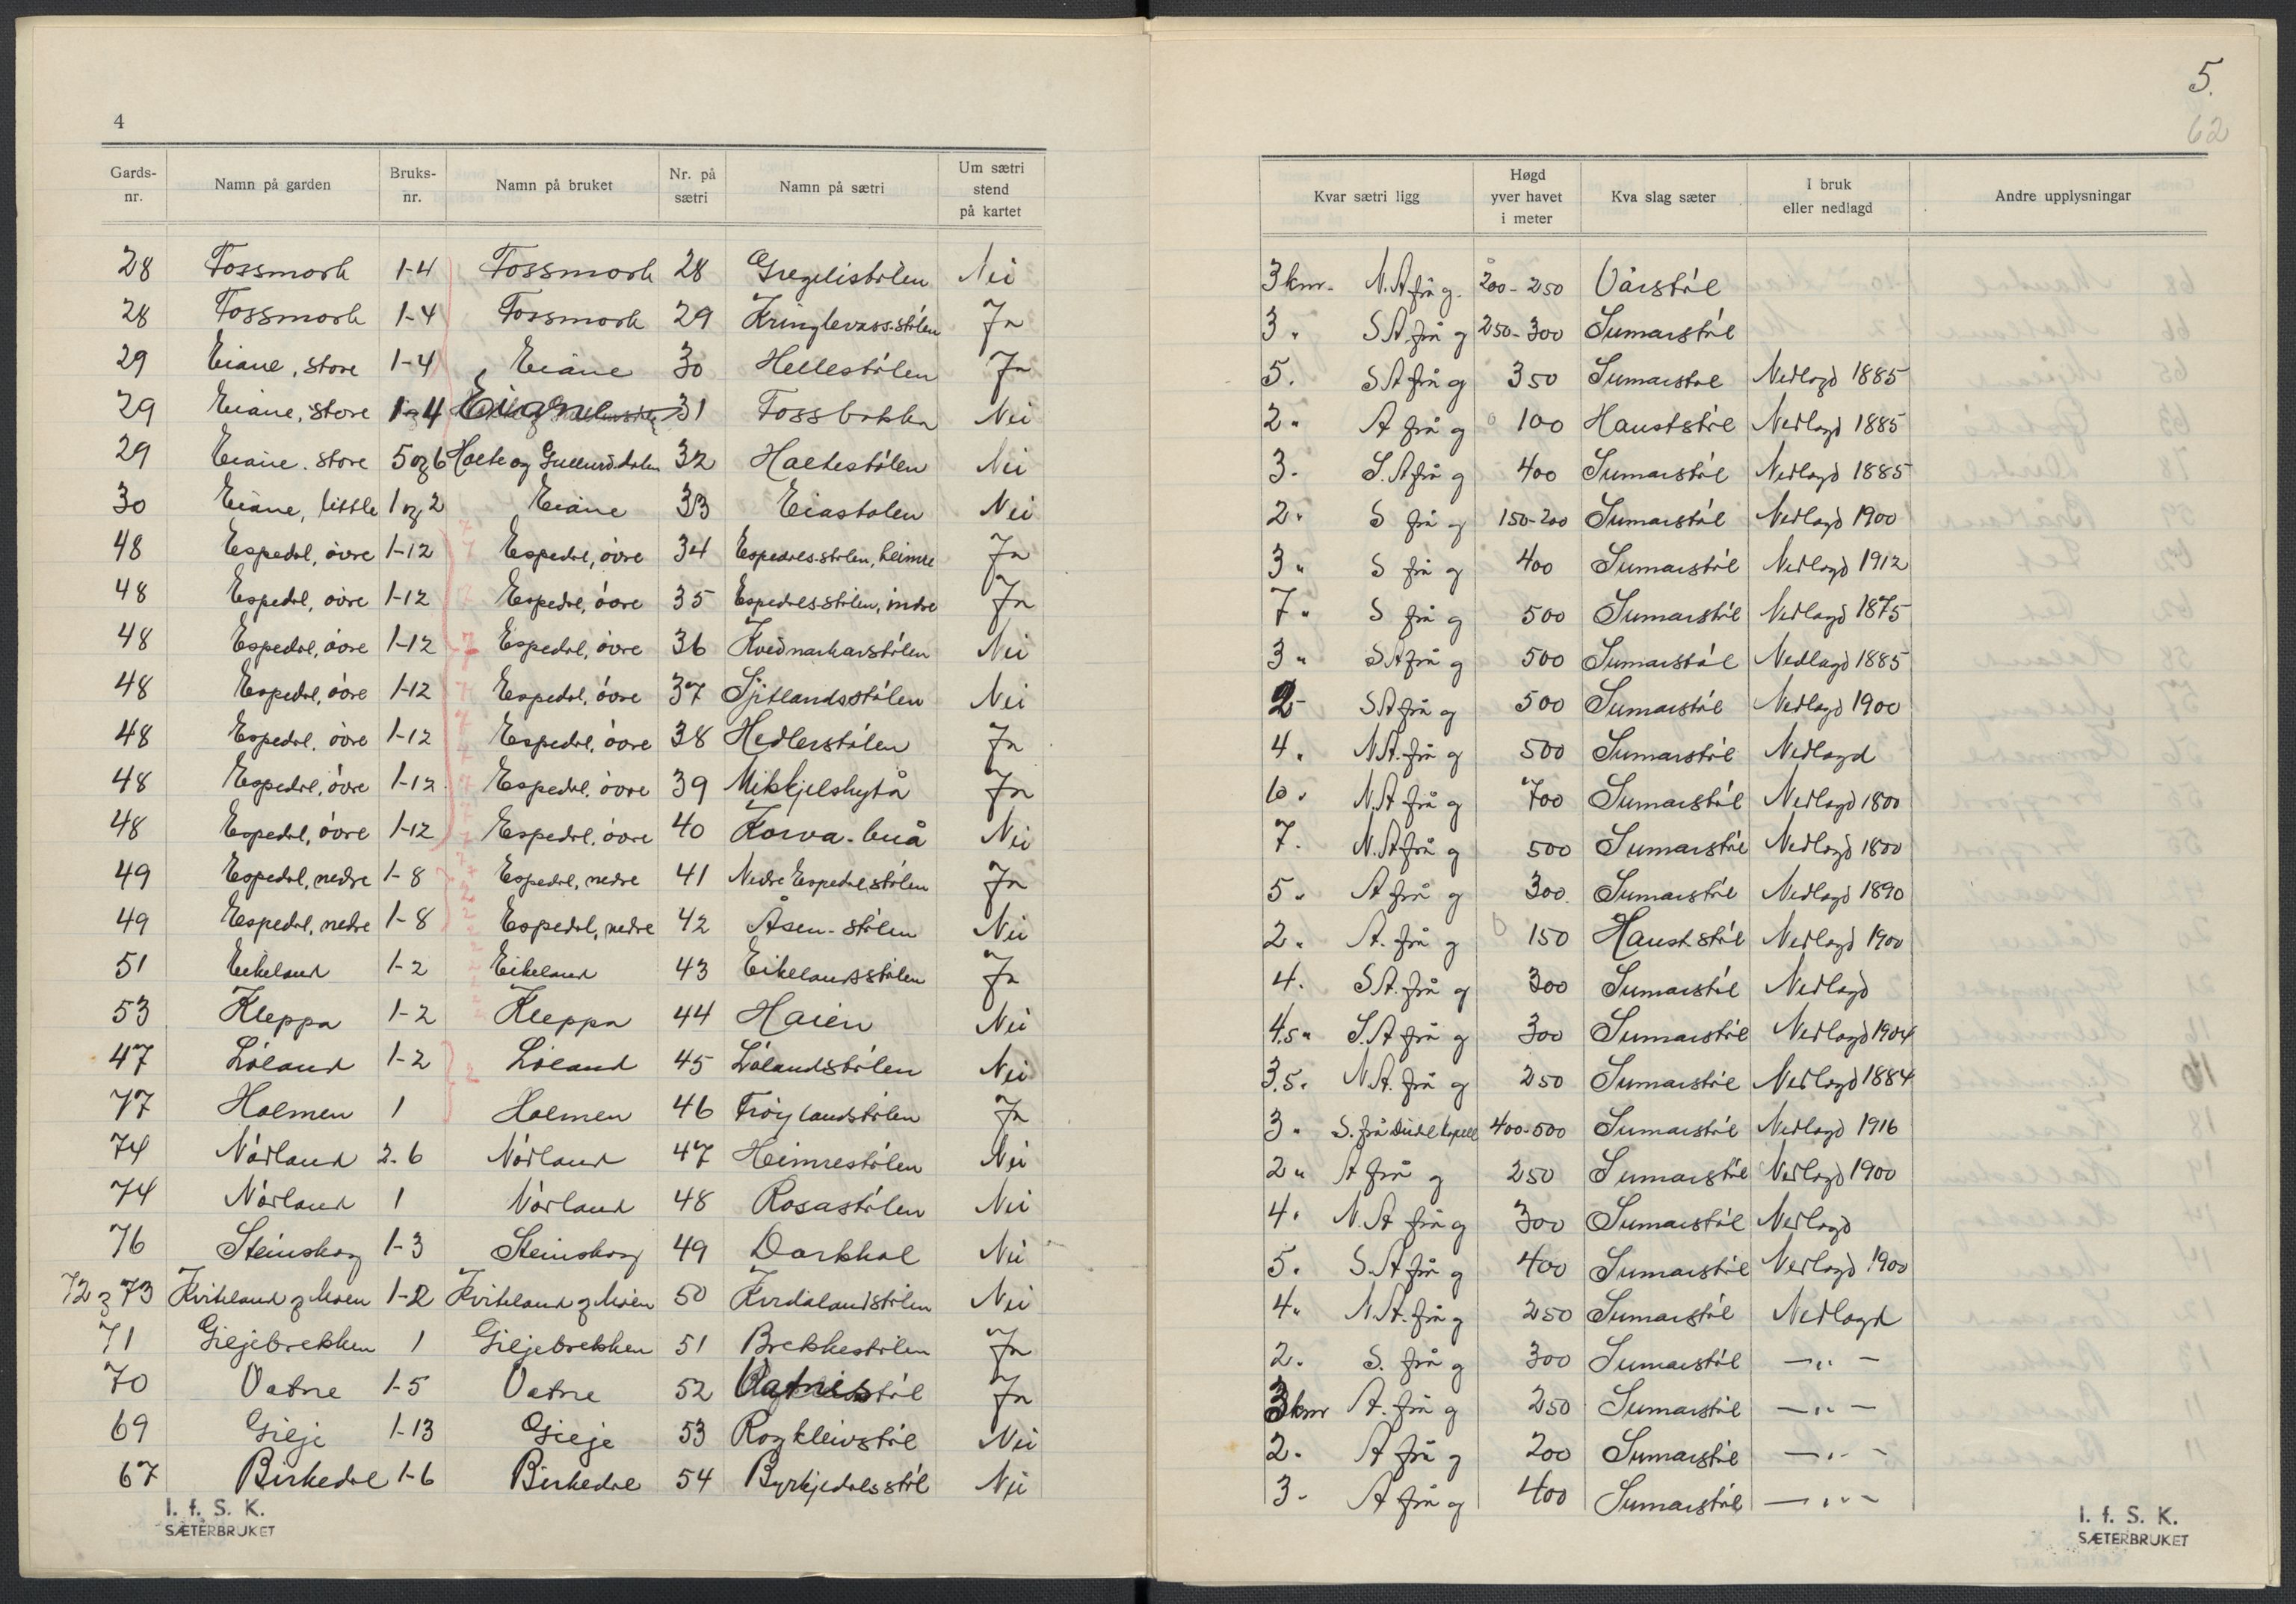 4
Gards-nr. Namn på garden Bruks-nr. Namn på bruket Nr. på sætri Namn på sætri Um sætri stend på kartet
28 Fossmork 1-4 Fossmork 28 Gregelistølen Nei
28 Fossmork 1-4 Fossmork 29 Kringlevass-stølen Ja
29 Eiane, store 1-4 Eiane 30 Hellestølen Ja
29 Eiane, store 1-4 Eiane 31 Fossbakka Nei
29 Eiane, store 5 og 6 Holte og Gullursdalen 32 Holtestølen Nei
30 Eiane, little 1 og 2 Eiane 33 Eiastølen Nei
48 Espedal, óvre 1-12 Espedal, óvre 34 Espedalsstølen, heimre Ja
48 Espedal, óvre 1-12 Espedal, óvre 35 Espedalsstølen, indre Ja
48 Espedal, óvre 1-12 Espedal, óvre 36 Kvednarkarstólen Nei
48 Espedal, óvre 1-12 Espedal, óvre 37 Sjitlandsstólen Nei
48 Espedal, óvre 1-12 Espedal, óvre 38 Hedlerstólen Ja
48 Espedal, óvre 1-12 Espedal, óvre 39 Mikkjelshytå Ja
48 Espedal, óvre 1-12 Espedal, óvre 40 Korva-buå Nei
49 Espedal, nedre 1-8 Espedal, nedre 41 Nedre Espedalstólen Ja
49 Espedal, nedre 1-8 Espedal, nedre 42 Åsen-stólen Nei
51 Eikeland 1-2 Eikeland 43 Eikelandsstólen Ja
53 Kleppa 1-2 Kleppa 44 Haien Nei
47 Lóland 1-2 Lóland 45 Lólandstólen Nei
77 Holmen 1 Holmen 46 Fróylandstólen Ja
74 Nórland 2-6 Nórland 47 Heimrestólen Nei
74 Nórland 1 Nórland 48 Rosastólen Nei
76 Steinskog 1-3 Steinskog 49 Darkhol Nei
72 og 73 Kviteland og Moen 1-2 Kviteland og Moen 50 Kvidalandstólen Nei
71 Giljebrekken 1 Giljebrekken 51 Brekkestólen Ja
70 Vatne 1-5 Vatne 52 Vatnestól Ja
69 Gilje 1-13 Gilje 53 Rogkleivstól Nei
67 Birkedal 1-6 Birkedal 54 Byrkjedalsstól Nei
I. f. S. K.
SÆTERBRUKET
5.
62
Kvar sætri ligg Høgd yver havet i meter Kva slag sæter I bruk eller nedlagd Andre upplysningar
3 km. N.A frå g. 200-250 Vårstól
3 " S A frå g 250-300 Sumarstól
5. S A frå g 350 Sumarstól Nedlagd 1885
2 " A frå g 100 Hauststól Nedlagd 1885
3. S.A frå g 400 Sumarstól Nedlagd 1885
2 " S frå g 150-200 Sumarstól Nedlagd 1900
3 " S frå g 400 Sumarstól Nedlagd 1912
7 " S frå g 500 Sumarstól Nedlagd 1875
3 " S A frå g 500 Sumarstól Nedlagd 1885
2 - S A frå g 500 Sumarstól Nedlagd 1900
4 " N A. frå g 500 Sumarstól Nedlagd
10 . N. A frå g 700 Sumarstól Nedlagd 1800
7. N. A frå g 500 Sumarstól Nedlagd 1800
5 " A frå g 300 Sumarstól Nedlagd 1890
2 " A. frå g 150 Hauststól Nedlagd 1900
4. S A. frå g 300 Sumarstól Nedlagd
4.5 " S. A frå g 300 Sumarstól Nedlagd 1904
3.5. N.A. frå g 250 Sumarstól Nedlagd 1884
3 " S. frå Dirdal kapell 400-500 Sumarstól Nedlagd 1916
2 " A frå g 250 Sumarstól Nedlagd 1900
4. N. A frå g 300 Sumarstól Nedlagd
5. S. A frå g 400 Sumarstól Nedlagd 1900
4 " N A. frå g 250 Sumarstól Nedlagd
2. S. frå g 300 Sumarstól — " —
3 km A. frå g 250 Sumarstól — " —
2. A frå g 200 Sumarstól — " —
3 - A frå g 400 Sumarstól — " —
I. f. S. K.
SÆTERBRUKET